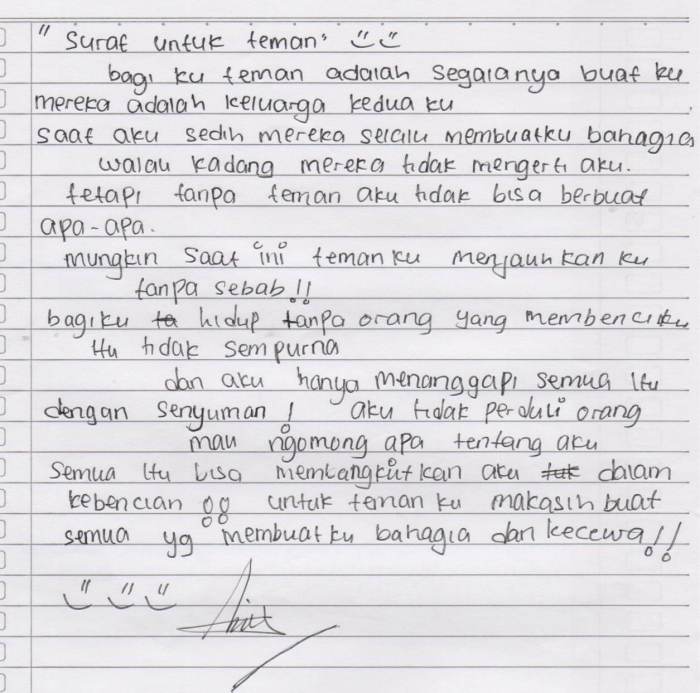 " Surat untuk teman"
bagi ku teman adalah segalanya buat ku
mereka adalah keluarga kedua ku
saat aku sedih mereka selalu membuatku bahagia
walau kadang mereka tidak mengerti aku.
tetapi tanpa teman aku tidak bisa berbuat
apa-apa.
mungkin saat ini teman ku menjauhkan ku
tanpa sebab!!
bagiku hidup tanpa orang yang membenciku
itu tidak sempurna
dan aku hanya menanggapi semua itu
dengan senyuman! aku tidak perduli orang
mau ngomong apa tentang aku
semua itu bisa membangkitkan aku dalam
kebencian!! untuk teman ku makasih buat
semua yg membuatku bahagia dan kecewa!!